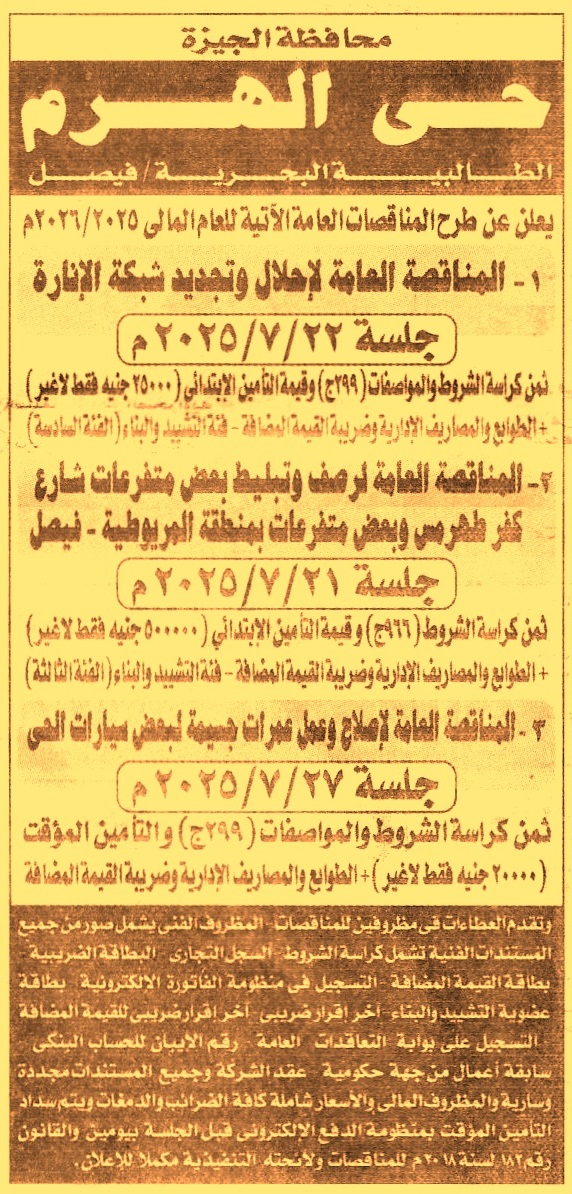 محافظة الجيزة
حى الهرم
الطالبية البحرية / فيصل
يعلن عن طرح المناقصات العامة الآتية للعام المالى ٢٠٢٦/٢٠٢٥م
١- المناقصة العامة لإحلال وتجديد شبكة الإنارة
جلسة ٢٠٢٥/٧/٢٢ م
ثمن كراسة الشروط والمواصفات (٢٩٩ج) وقيمة التأمين الإبتدائي (٢٥٠٠٠ جنيه فقط لاغير)
+ الطوابع والمصاريف الإدارية وضريبة القيمة المضافة - فئة التشييد والبناء (الفئة السادسة)
٢- المناقصة العامة لرصف وتبليط بعض متفرعات شارع
كفر طهرمس وبعض متفرعات بمنطقة المريوطية - فيصل
جلسة ٢٠٢٥/٧/٢١ م
ثمن كراسة الشروط (٩٦٦ج) وقيمة التأمين الإبتدائي (٥٠٠٠٠٠ جنيه فقط لاغير)
+ الطوابع والمصاريف الإدارية وضريبة القيمة المضافة - فئة التشييد والبناء (الفئة الثالثة)
٣- المناقصة العامة لإصلاح وعمل عمرات جسيمة لبعض سيارات الحى
جلسة ٢٠٢٥/٧/٢٧ م
ثمن كراسة الشروط والمواصفات (٢٩٩ج) والتأمين المؤقت
(٢٠٠٠٠ جنيه فقط لاغير) + الطوابع والمصاريف الإدارية وضريبة القيمة المضافة
وتقدم العطاءات فى مظروفين للمناقصات - المظروف الفنى يشمل صور من جميع
المستندات الفنية تشمل كراسة الشروط - السجل التجارى - البطاقة الضريبية -
بطاقة القيمة المضافة - التسجيل فى منظومة الفاتورة الإلكترونية - بطاقة
عضوية التشييد والبناء - آخر إقرار ضريبى - آخر إقرار ضريبى للقيمة المضافة
- التسجيل على بوابة التعاقدات العامة - رقم الايبان للحساب البنكى -
سابقة أعمال من جهة حكومية - عقد الشركة وجميع المستندات مجددة
وسارية والمظروف المالى والأسعار شاملة كافة الضرائب والدمغات ويتم سداد
التأمين المؤقت بمنظومة الدفع الإلكترونى قبل الجلسة بيومين والقانون
رقم ١٨٢ لسنة ٢٠١٨م للمناقصات ولائحته التنفيذية مكملا للإعلان.